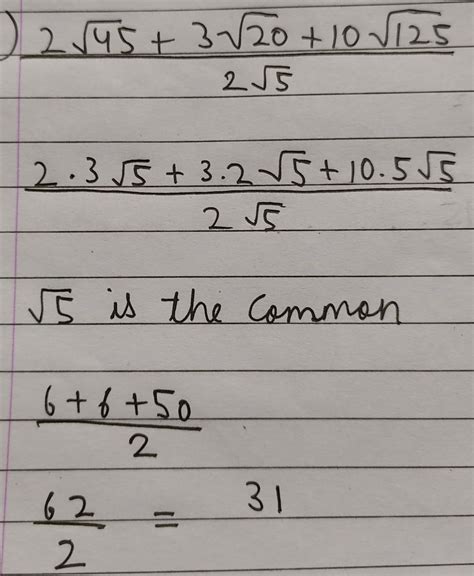 ) 2√45 + 3√20 + 10√125
2√5
2·3√5 + 3.2√5 + 10.5√5
2√5
√5 is the common
6+6+50
2
62 = 31
2